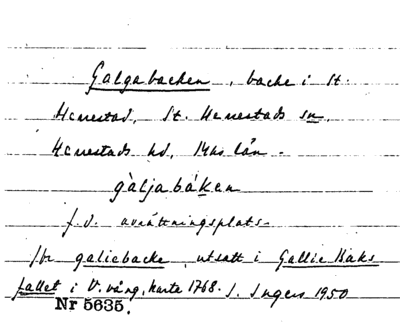 Galgabacken, backe i St.
Herrestad, St. Herrestads sn,
Herrestads hd, Mlhs län.
gàljabáken
f.d. avrättningsplats.
för galiebacke, utsatt i Gallie Baks
fallet i V. vång, karta 1768. I. Ingers 1950
Nr 5635.